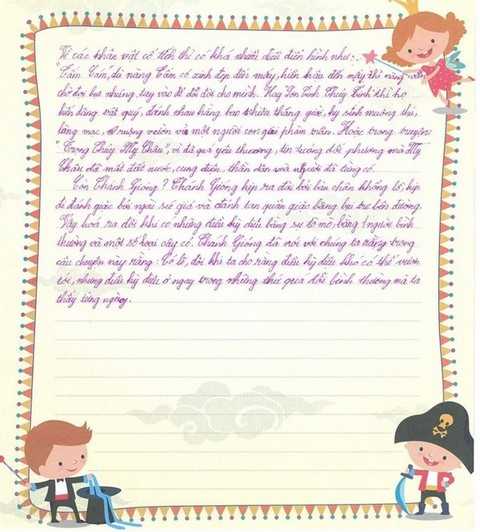 Về các nhân vật cổ tích thì có khá nhiều, tiêu điển hình như:
Tấm Cám, dù nàng Tấm có xinh đẹp đến mấy, hiền hậu đến mấy thì nàng vẫn
chờ đợi bụt nhưng tay vào để đổi đời cho mình. Hay Sơn Tinh Thủy Tinh thì họ
dâng vật quý, đánh nhau hằng bao nhiêu tháng giời, hy sinh mương thú,
làng mạc, ruộng vườn vì một người con gái phàm trần. Hoặc trong truyện
"Trọng Thủy Mỵ Châu", vì đã quá yêu thương, tin tưởng đối phương mà Mỵ
Châu đã mất đất nước, cung điện, thần dân và người đã từng có.
Còn Thánh Gióng? Thánh Gióng kịp ra đời bởi bàn chân khổng lồ, kịp
đi đánh giặc bởi ngài sứ giả và đánh tan quân giặc bằng bụi tre bên đường.
Vậy hoá ra đôi khi có những điều kỳ diệu bằng sự tò mò, bằng 1 người bình
thường và một số loài cây cỏ. Thánh Gióng đã nói với chúng ta rằng trong
câu chuyện này rằng: Có lẽ, đôi khi ta cho rằng điều kỳ diệu khó có thể với
tới, nhưng điều kỳ diệu ở ngay trong những thứ quá đỗi bình thường mà ta
thấy từng ngày.